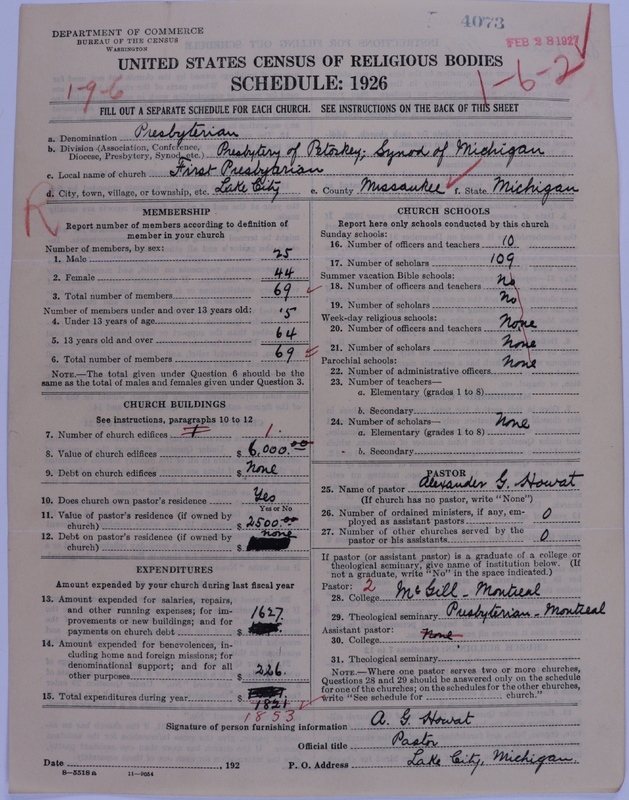 DEPARTMENT OF COMMERCE
BUREAU OF THE CENSUS
WASHINGTON
4073
FEB 28 1927
UNITED STATES CENSUS OF RELIGIOUS BODIES
SCHEDULE: 1926
1-9-6
1-6-2
FILL OUT A SEPARATE SCHEDULE FOR EACH CHURCH. SEE INSTRUCTIONS ON THE BACK OF THIS SHEET
a. Denomination Presbyterian
b. Division (Association, Conference, Diocese, Presbytery, Synod, etc.) Presbytery of Petoskey; Synod of Michigan
c. Local name of church First Presbyterian
d. City, town, village, or township, etc. Lake City e. County Missaukee f. State Michigan
R
MEMBERSHIP
Report number of members according to definition of
member in your church
Number of members, by sex:
1. Male 25
2. Female 44
3. Total number of members 69
Number of members under and over 13 years old:
4. Under 13 years of age 5
5. 13 years old and over 64
6. Total number of members 69
NOTE.—The total given under Question 6 should be
same as the total of males and females given under Question 3.
CHURCH BUILDINGS
See instructions, paragraphs 10 to 12
7. Number of church edifices 1
8. Value of church edifices $ 6,000.00
9. Debt on church edifices $ None
10. Does church own pastor's residence Yes
Yes or No
11. Value of pastor's residence (if owned by
church) $ 2500.00
12. Debt on pastor's residence (if owned by
church) $ none
EXPENDITURES
Amount expended by your church during last fiscal year
13. Amount expended for salaries, repairs,
and other running expenses; for im-
provements or new buildings; and for
payments on church debt $ 1627.
14. Amount expended for benevolences, in-
cluding home and foreign missions; for
denominational support; and for all
other purposes $ 226.
15. Total expenditures during year $ 1821
1853
CHURCH SCHOOLS
Report here only schools conducted by this church
Sunday schools:
16. Number of officers and teachers 10
17. Number of scholars 109
Summer vacation Bible schools:
18. Number of officers and teachers No
19. Number of scholars No
Week-day religious schools:
20. Number of officers and teachers None
21. Number of scholars None
Parochial schools:
22. Number of administrative officers None
23. Number of teachers—
a. Elementary (grades 1 to 8)
b. Secondary
24. Number of scholars— None
a. Elementary (grades 1 to 8)
b. Secondary
PASTOR
25. Name of pastor Alexander G. Howat
(If church has no pastor, write "None")
26. Number of ordained ministers, if any, em-
ployed as assistant pastors 0
27. Number of other churches served by the
pastor or his assistants 0
If pastor (or assistant pastor) is a graduate of a college or
theological seminary, give name of institution below. (If
not a graduate, write "No" in the space indicated.)
Pastor: 2
28. College McGill - Montreal
29. Theological seminary Presbyterian - Montreal
Assistant pastor:
30. College None
31. Theological seminary
NOTE.—Where one pastor serves two or more churches,
Questions 28 and 29 should be answered only on the schedule
for one of the churches; on the schedules for the other churches,
write "See schedule for church."
Signature of person furnishing information A. G. Howat
Official title Pastor
Date , 192 P. O. Address Lake City, Michigan.
8-5518 a 11-9054